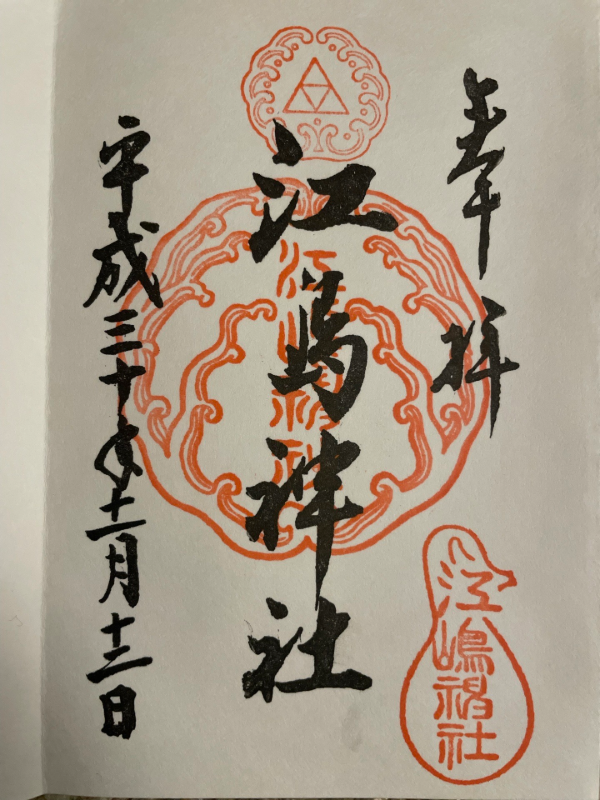 奉拝
江島神社
江嶋神社
平成三十年十一月十二日
江嶋神社